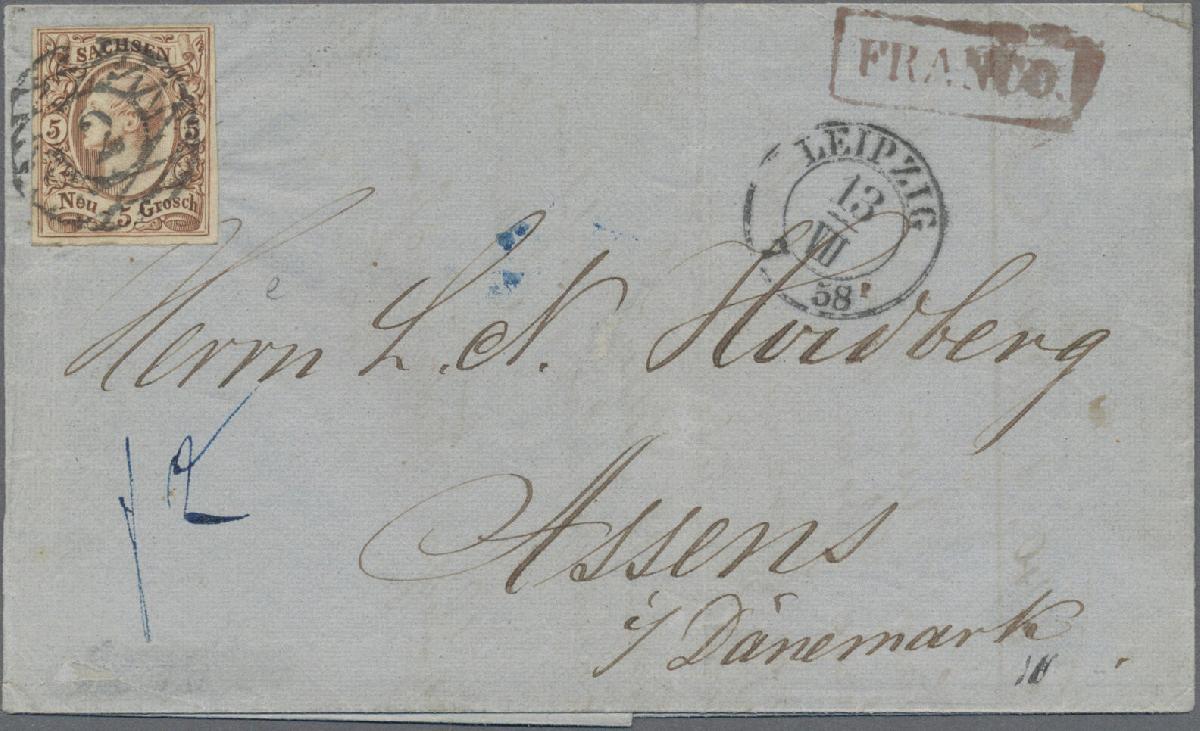 SACHSEN
5 5
Neu 5 Grosch
2
FRANCO.
LEIPZIG
13
VII
58
Herrn L. N. Hvidberg
Assens
i/ Dänemark